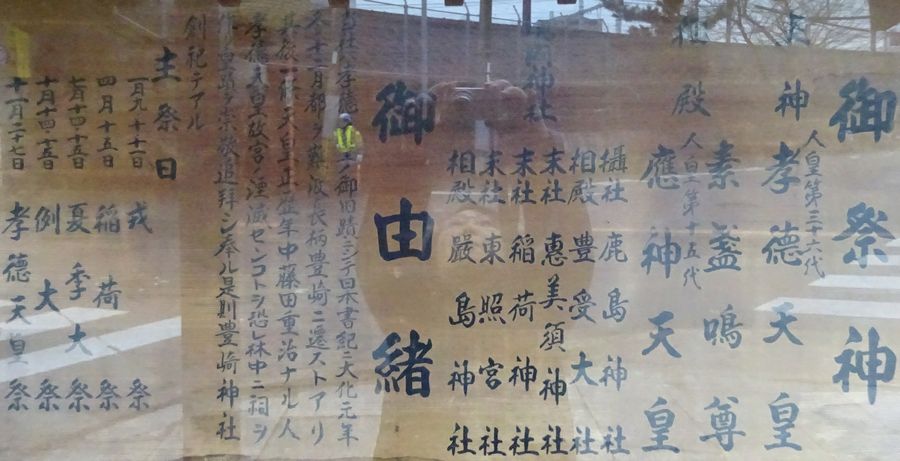 御祭神
主神 人皇第三十六代
孝德天皇
素盞嗚尊
相殿 人皇第十五代
應神天皇
攝社 鹿島神社
相殿 豊受大神社
末社 恵美須神社
末社 稲荷神社
末社 東照宮社
相殿 嚴島神社
神社
御由緒
御旧蹟ニシテ日本書紀ニ大化元年
都ヲ難波長柄豊崎ニ遷ストアリ
一條天皇正暦年中藤田重治ナル人
孝德天皇故宮ノ湮滅センコトヲ恐レ林中ニ祠ヲ
崇敬追拜シ奉ル是則豊崎神社
創祀テアル
主祭日
一月九・十・十一日 戎祭
四月十五日 稲荷祭
七月十四・十五日 夏季大祭
十月十四・十五日 例大祭
十一月二十七日 孝德天皇祭